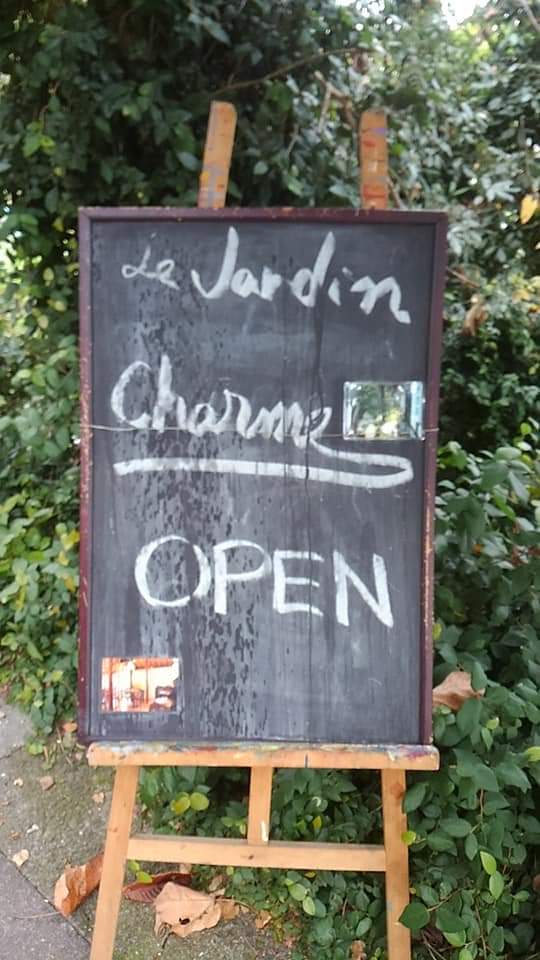 Le Jardin
Charme
OPEN